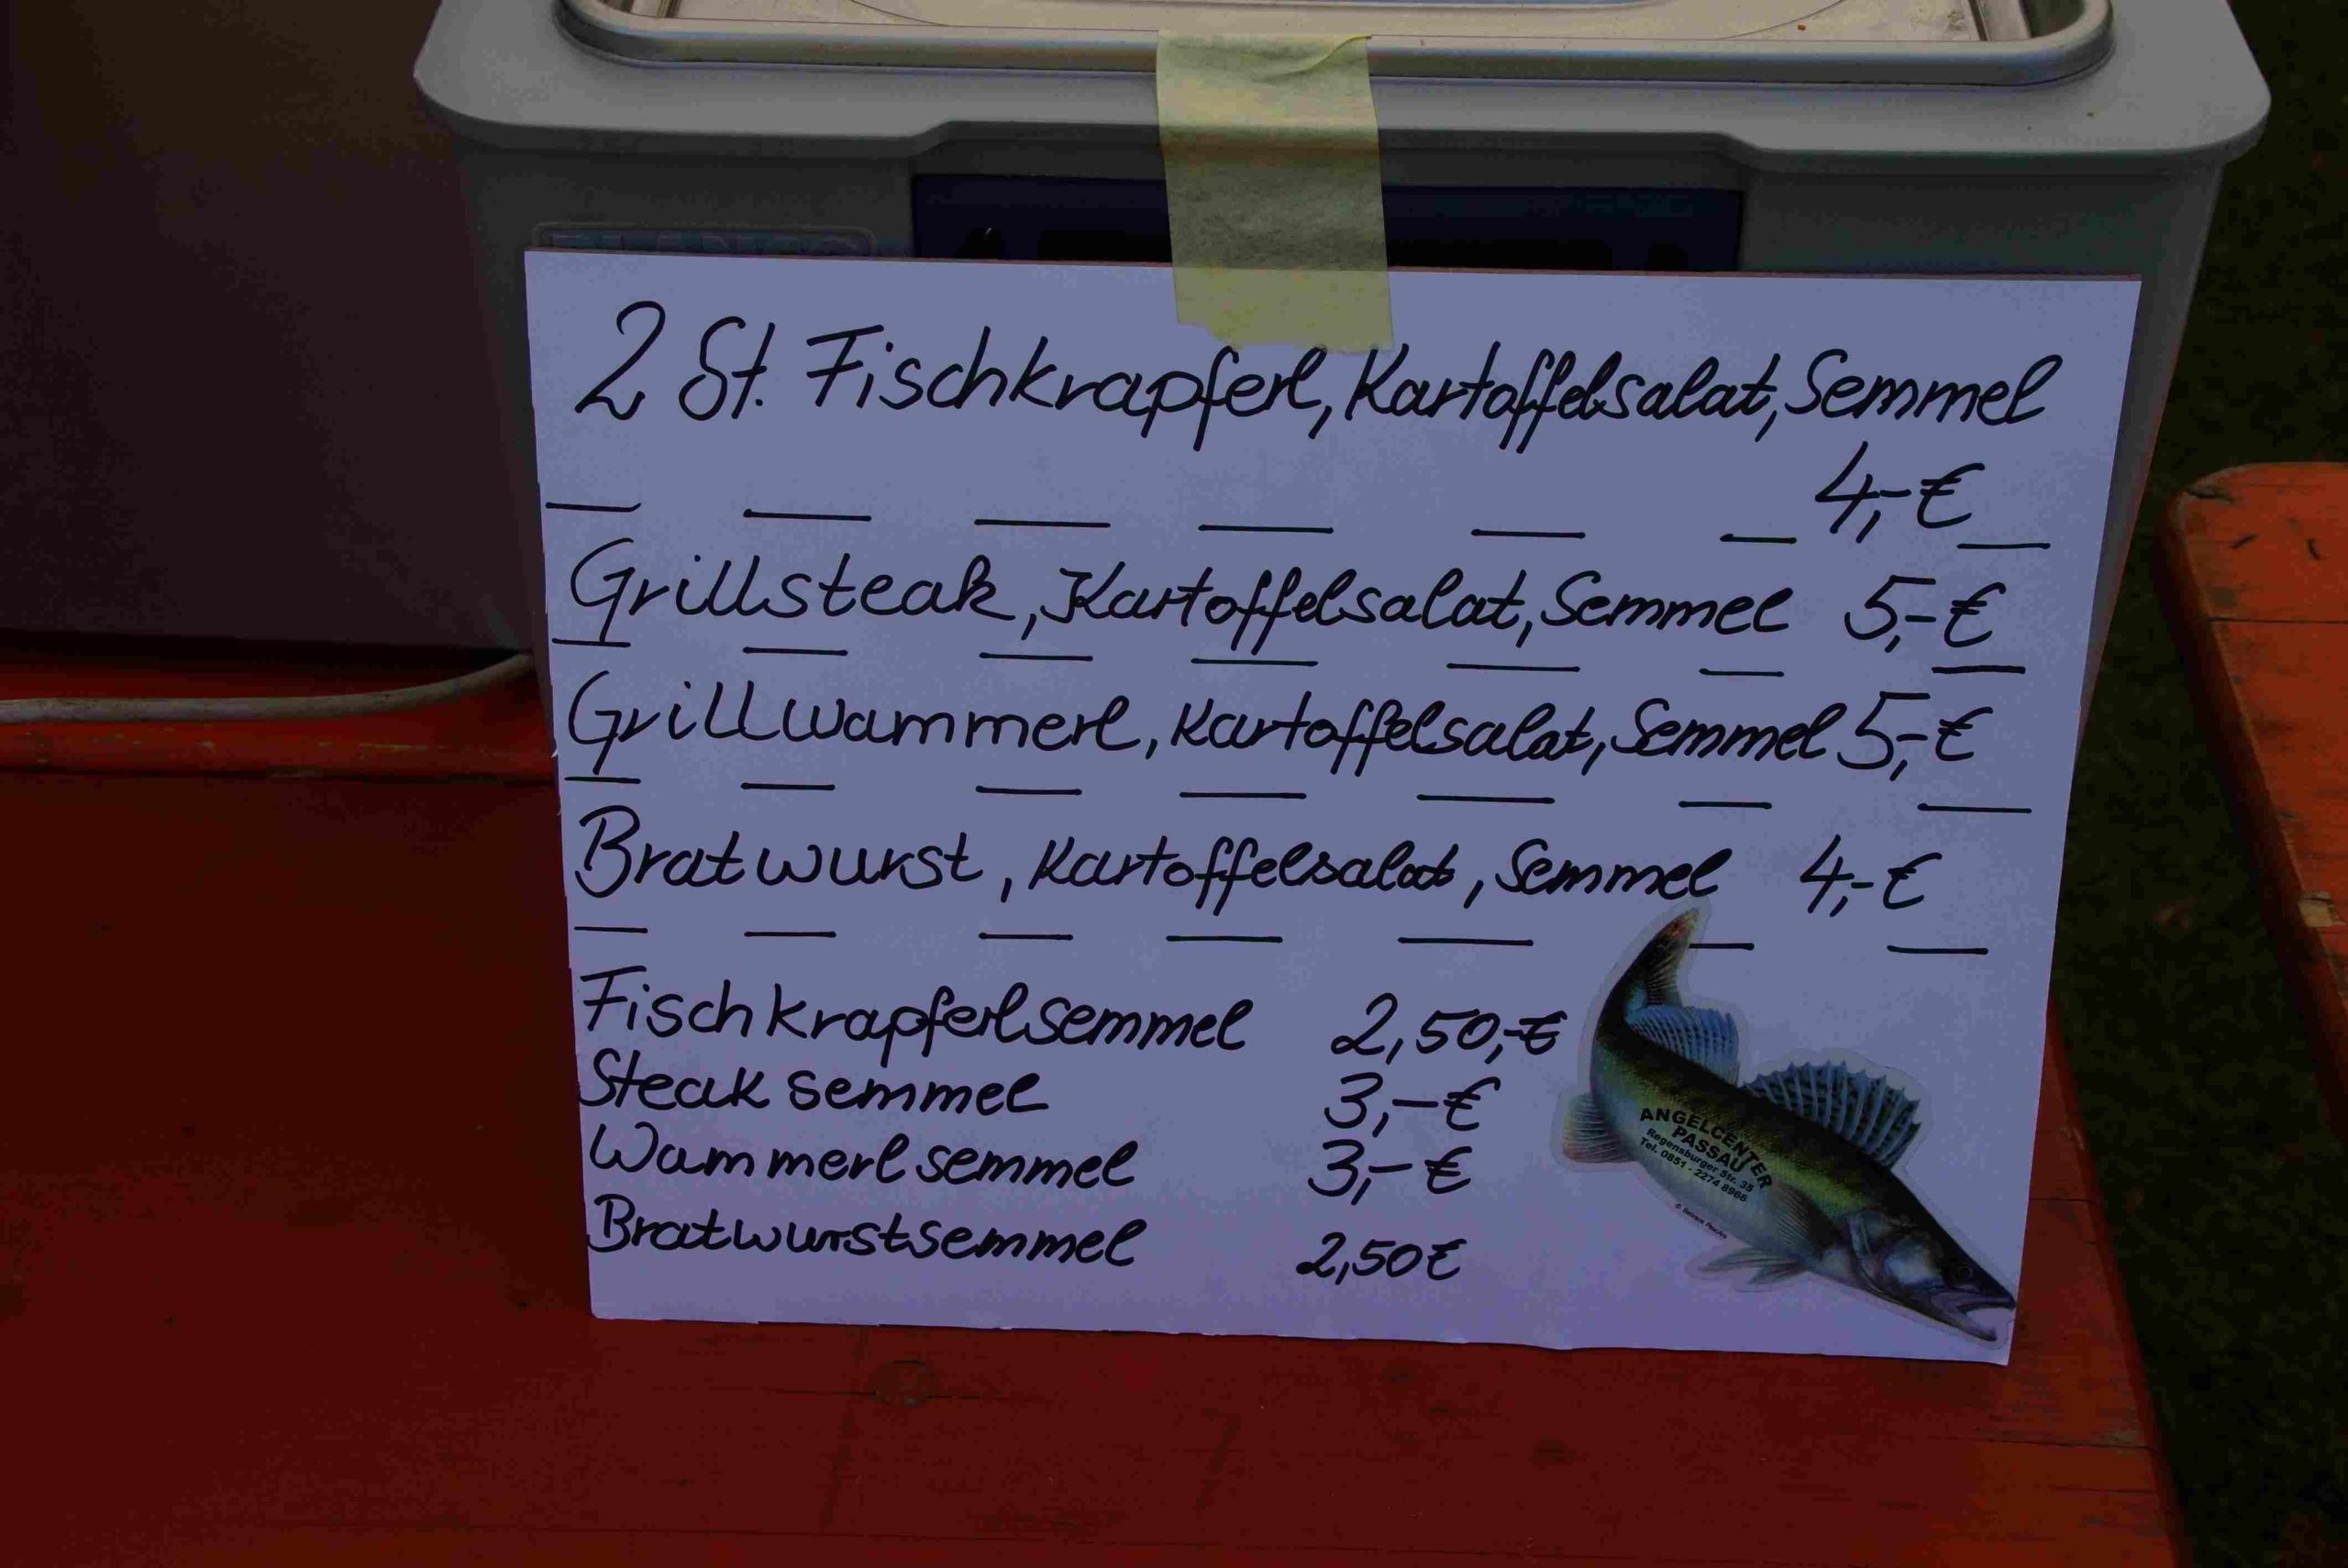 2 St. Fischkrapferl, Kartoffelsalat, Semmel
4,-€
Grillsteak, Kartoffelsalat, Semmel 5,-€
Grillwammerl, Kartoffelsalat, Semmel 5,-€
Bratwurst, Kartoffelsalat, Semmel 4,-€
Fischkrapferlsemmel 2,50,-€
Steaksemmel 3,-€
Wammerlsemmel 3,-€
Bratwurstsemmel 2,50€
ANGELCENTER
PASSAU
Regensburger Str. 35
Tel. 0851 - 2274 8966